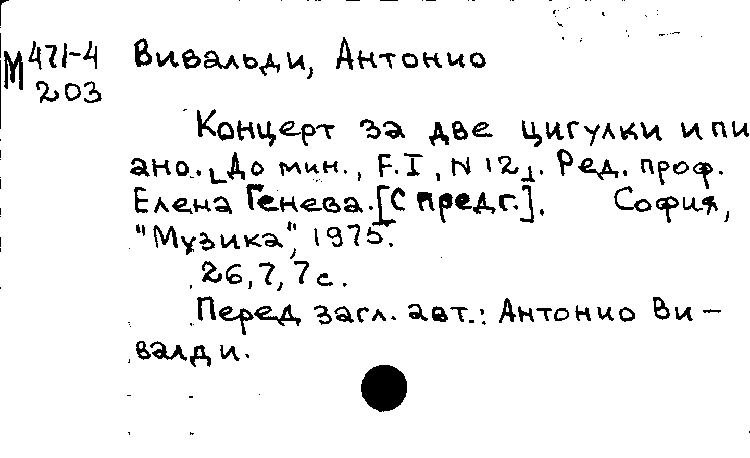 М 471-4 Вивальди, Антонио
203
Концерт за две цигулки и пи
ано. [До мин., F.I, N 12]. Ред. проф.
Елена Генева. [С предг.]. София,
"Музика", 1975.
26, 7, 7 с.
Перед загл. авт.: Антонио Ви-
валди.